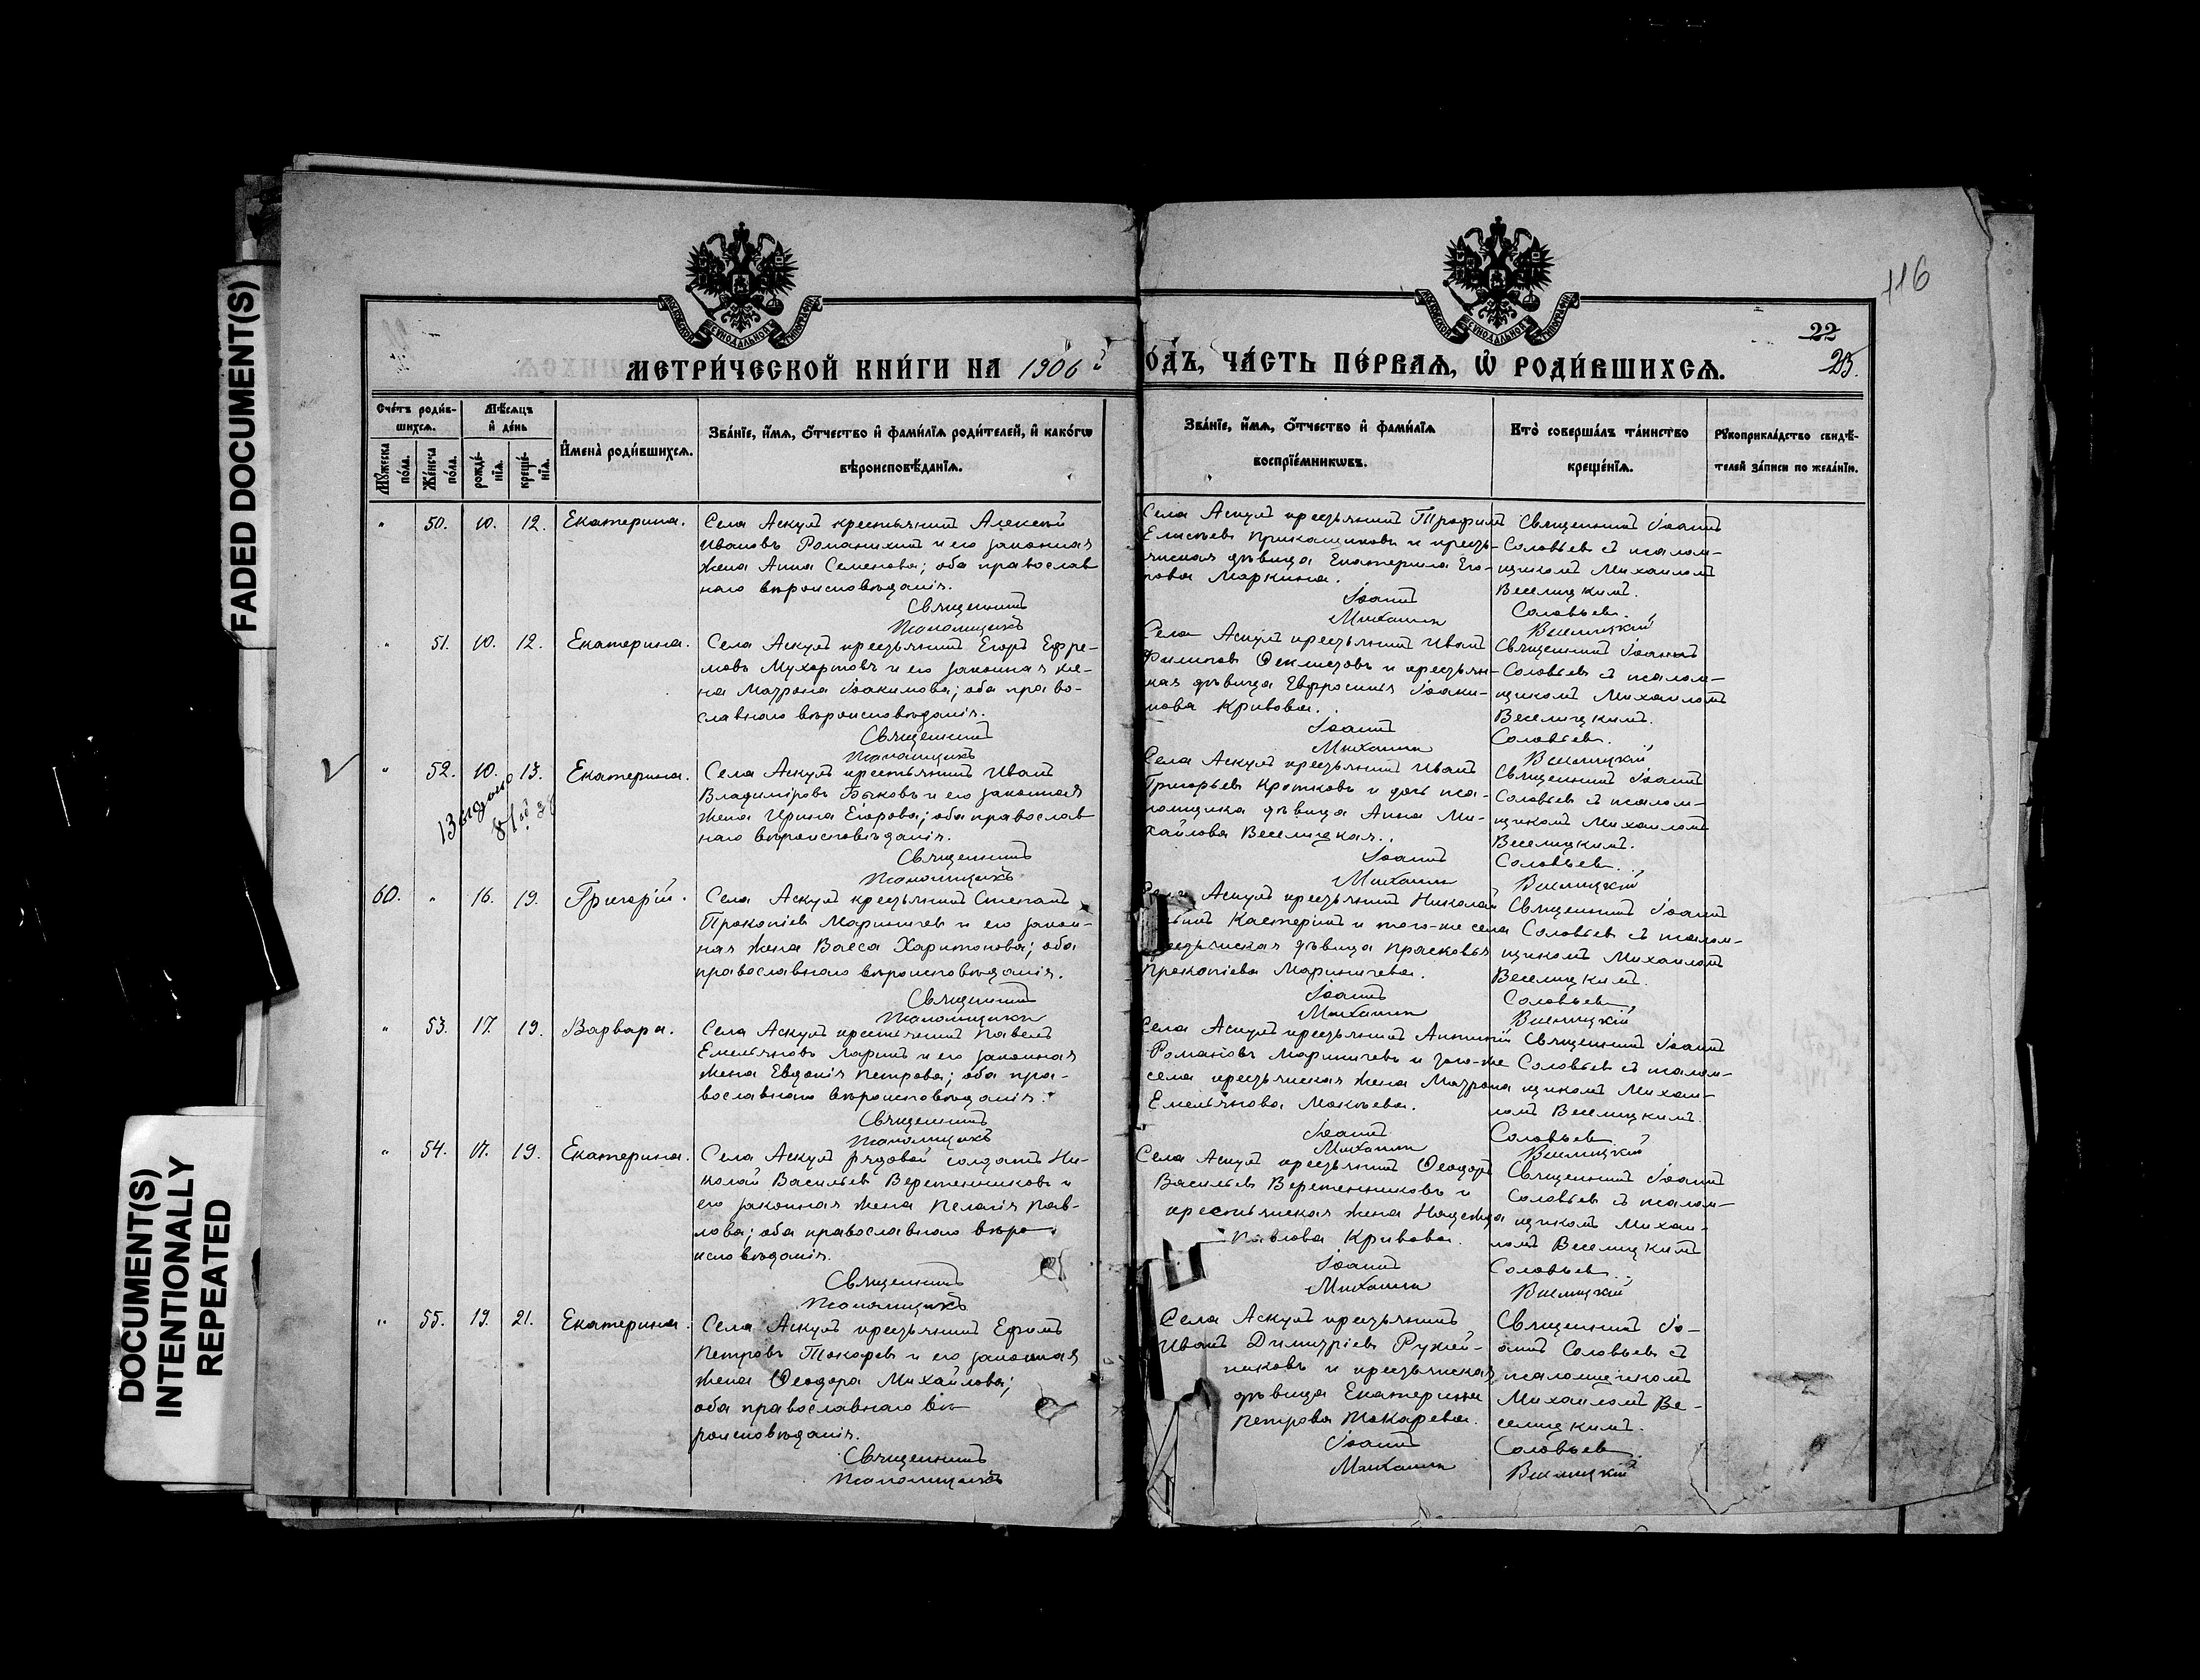 FADED DOCUMENT(S)
DOCUMENT(S)
INTENTIONALLY
REPEATED
116
22
23.
МЕТРИ́ЧЕСКОЙ КНИ́ГИ НА 1906 й
ОДЪ, ЧА́СТЬ ПЕ́РВАѦ, Ѡ҆ РОДИ́ВШИХСѦ.
Сче́тъ роди́в-
шихсѧ.
Мѣ́сѧцъ
и҆ де́нь
Мꙋ́жеска по́ла.
Же́нска по́ла.
рожде́-
нїѧ.
креще́-
нїѧ.
И҆мена̀ роди́вшихсѧ.
Зва́нїе, и҆́мѧ, ѻ҆́тчество и҆ фами́лїѧ роди́телей, и҆ како́гѡ
вѣроисповѣ́данїѧ.
Зва́нїе, и҆́мѧ, ѻ҆́тчество и҆ фами́лїѧ
воспрїе́мникѡвъ.
Кто̀ соверша́лъ та́инство
креще́нїѧ.
Рꙋкоприкла́дство свидѣ́-
телей за́писи по жела́нїю.
" 50. 10. 12. Екатерина.
Села Аскулъ крестьянинъ Алексѣй
Ивановъ Романихинъ и его законная
жена Анна Семенова; оба православ
наго вѣроисповѣданія.
Священникъ
Псаломщикъ
Села Аскулъ крестьянинъ Трофимъ
Елисѣевъ Прикащиковъ и кресть-
янская дѣвица Екатерина Его-
рова Маркина.
Іоаннъ
Михаилъ
Священникъ Іоаннъ
Соловьевъ съ псалом-
щикомъ Михаиломъ
Веселицкимъ.
Соловьевъ.
Веселицкій
" 51. 10. 12. Екатерина.
Села Аскулъ крестьянинъ Егоръ Ефре-
мовъ Мухортовъ и его законная же-
на Матрона Іоакимова; оба право-
славнаго вѣроисповѣданія.
Священникъ
Псаломщикъ
Села Аскулъ крестьянинъ Иванъ
Филиповъ Феклистовъ и крестьян-
ская дѣвица Евфросинія Іоаки-
мова Кривова.
Іоаннъ
Михаилъ
Священникъ Іоаннъ
Соловьевъ съ псалом-
щикомъ Михаиломъ
Веселицкимъ.
Соловьевъ.
Веселицкій
" 52. 10. 13. Екатерина.
Села Аскулъ крестьянинъ Иванъ
Владиміровъ Быковъ и его законная
жена Ирина Егорова; оба православ
наго вѣроисповѣданія.
Священникъ
Псаломщикъ
Села Аскулъ крестьянинъ Иванъ
Григорьевъ Кротковъ и дочь пса-
ломщика дѣвица Анна Ми-
хайлова Веселицкая.
Іоаннъ
Михаилъ
Священникъ Іоаннъ
Соловьевъ съ псалом-
щикомъ Михаиломъ
Веселицкимъ.
Соловьевъ.
Веселицкій
60. " 16. 19. Григорій.
Села Аскулъ крестьянинъ Степанъ
Прокопіевъ Мариничевъ и его закон-
ная жена Васса Харитонова; оба
православнаго вѣроисповѣданія.
Священникъ
Псаломщикъ
Аскулъ крестьянинъ Николай
Кастеринъ и того-же села
дѣвица Прасковья
Прокопіева Мариничева.
Іоаннъ
Михаилъ
Священникъ Іоаннъ
Соловьевъ съ псалом-
щикомъ Михаиломъ
Веселицкимъ.
Соловьевъ.
Веселицкій
" 53. 17. 19. Варвара.
Села Аскулъ крестьянинъ Павелъ
Емельяновъ Ларинъ и его законная
жена Евдокія Петрова; оба пра-
вославнаго вѣроисповѣданія.
Священникъ
Псаломщикъ
Села Аскулъ крестьянинъ
Романовъ Мариничевъ и того-же
села крестьянская жена Матрона
Емельянова Мокѣева.
Іоаннъ
Михаилъ
Священникъ Іоаннъ
Соловьевъ съ псалом-
щикомъ Михаи-
ломъ Веселицкимъ.
Соловьевъ
Веселицкій
" 54. 17. 19. Екатерина.
Села Аскулъ рядовой солдатъ Ни-
колай Васильевъ Веретенниковъ и
его законная жена Пелагія Пав-
лова; оба православнаго вѣро-
исповѣданія.
Священникъ
Псаломщикъ
Села Аскулъ крестьянинъ Ѳеодоръ
Васильевъ Веретенниковъ и
крестьянская жена Надежда
Павлова Кривова.
Іоаннъ
Михаилъ
Священникъ Іоаннъ
Соловьевъ съ псалом-
щикомъ Михаи-
ломъ Веселицкимъ
Соловьевъ.
Веселицкій
" 55. 19. 21. Екатерина.
Села Аскулъ крестьянинъ Ефимъ
Петровъ Токаревъ и его законная
жена Ѳеодора Михайлова;
оба православнаго вѣ-
роисповѣданія.
Священникъ
Псаломщикъ
Села Аскулъ крестьянинъ
Иванъ Димитріевъ Ружей-
никовъ и крестьянская
дѣвица Екатерина
Петрова Токарева.
Іоаннъ
Михаилъ
Священникъ Іо-
аннъ Соловьевъ съ
псаломщикомъ
Михаиломъ Ве-
селицкимъ.
Соловьевъ
Веселицкій